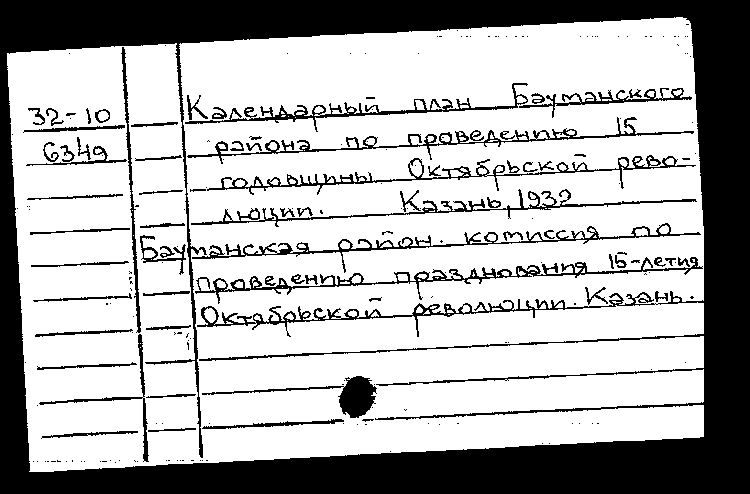 32-10 Календарный план Бауманского
6349 района по проведению 15
годовщины Октябрьской рево-
люции. Казань, 1932
Бауманская район. комиссия по
проведению празднования 15-летия
Октябрьской революции. Казань.